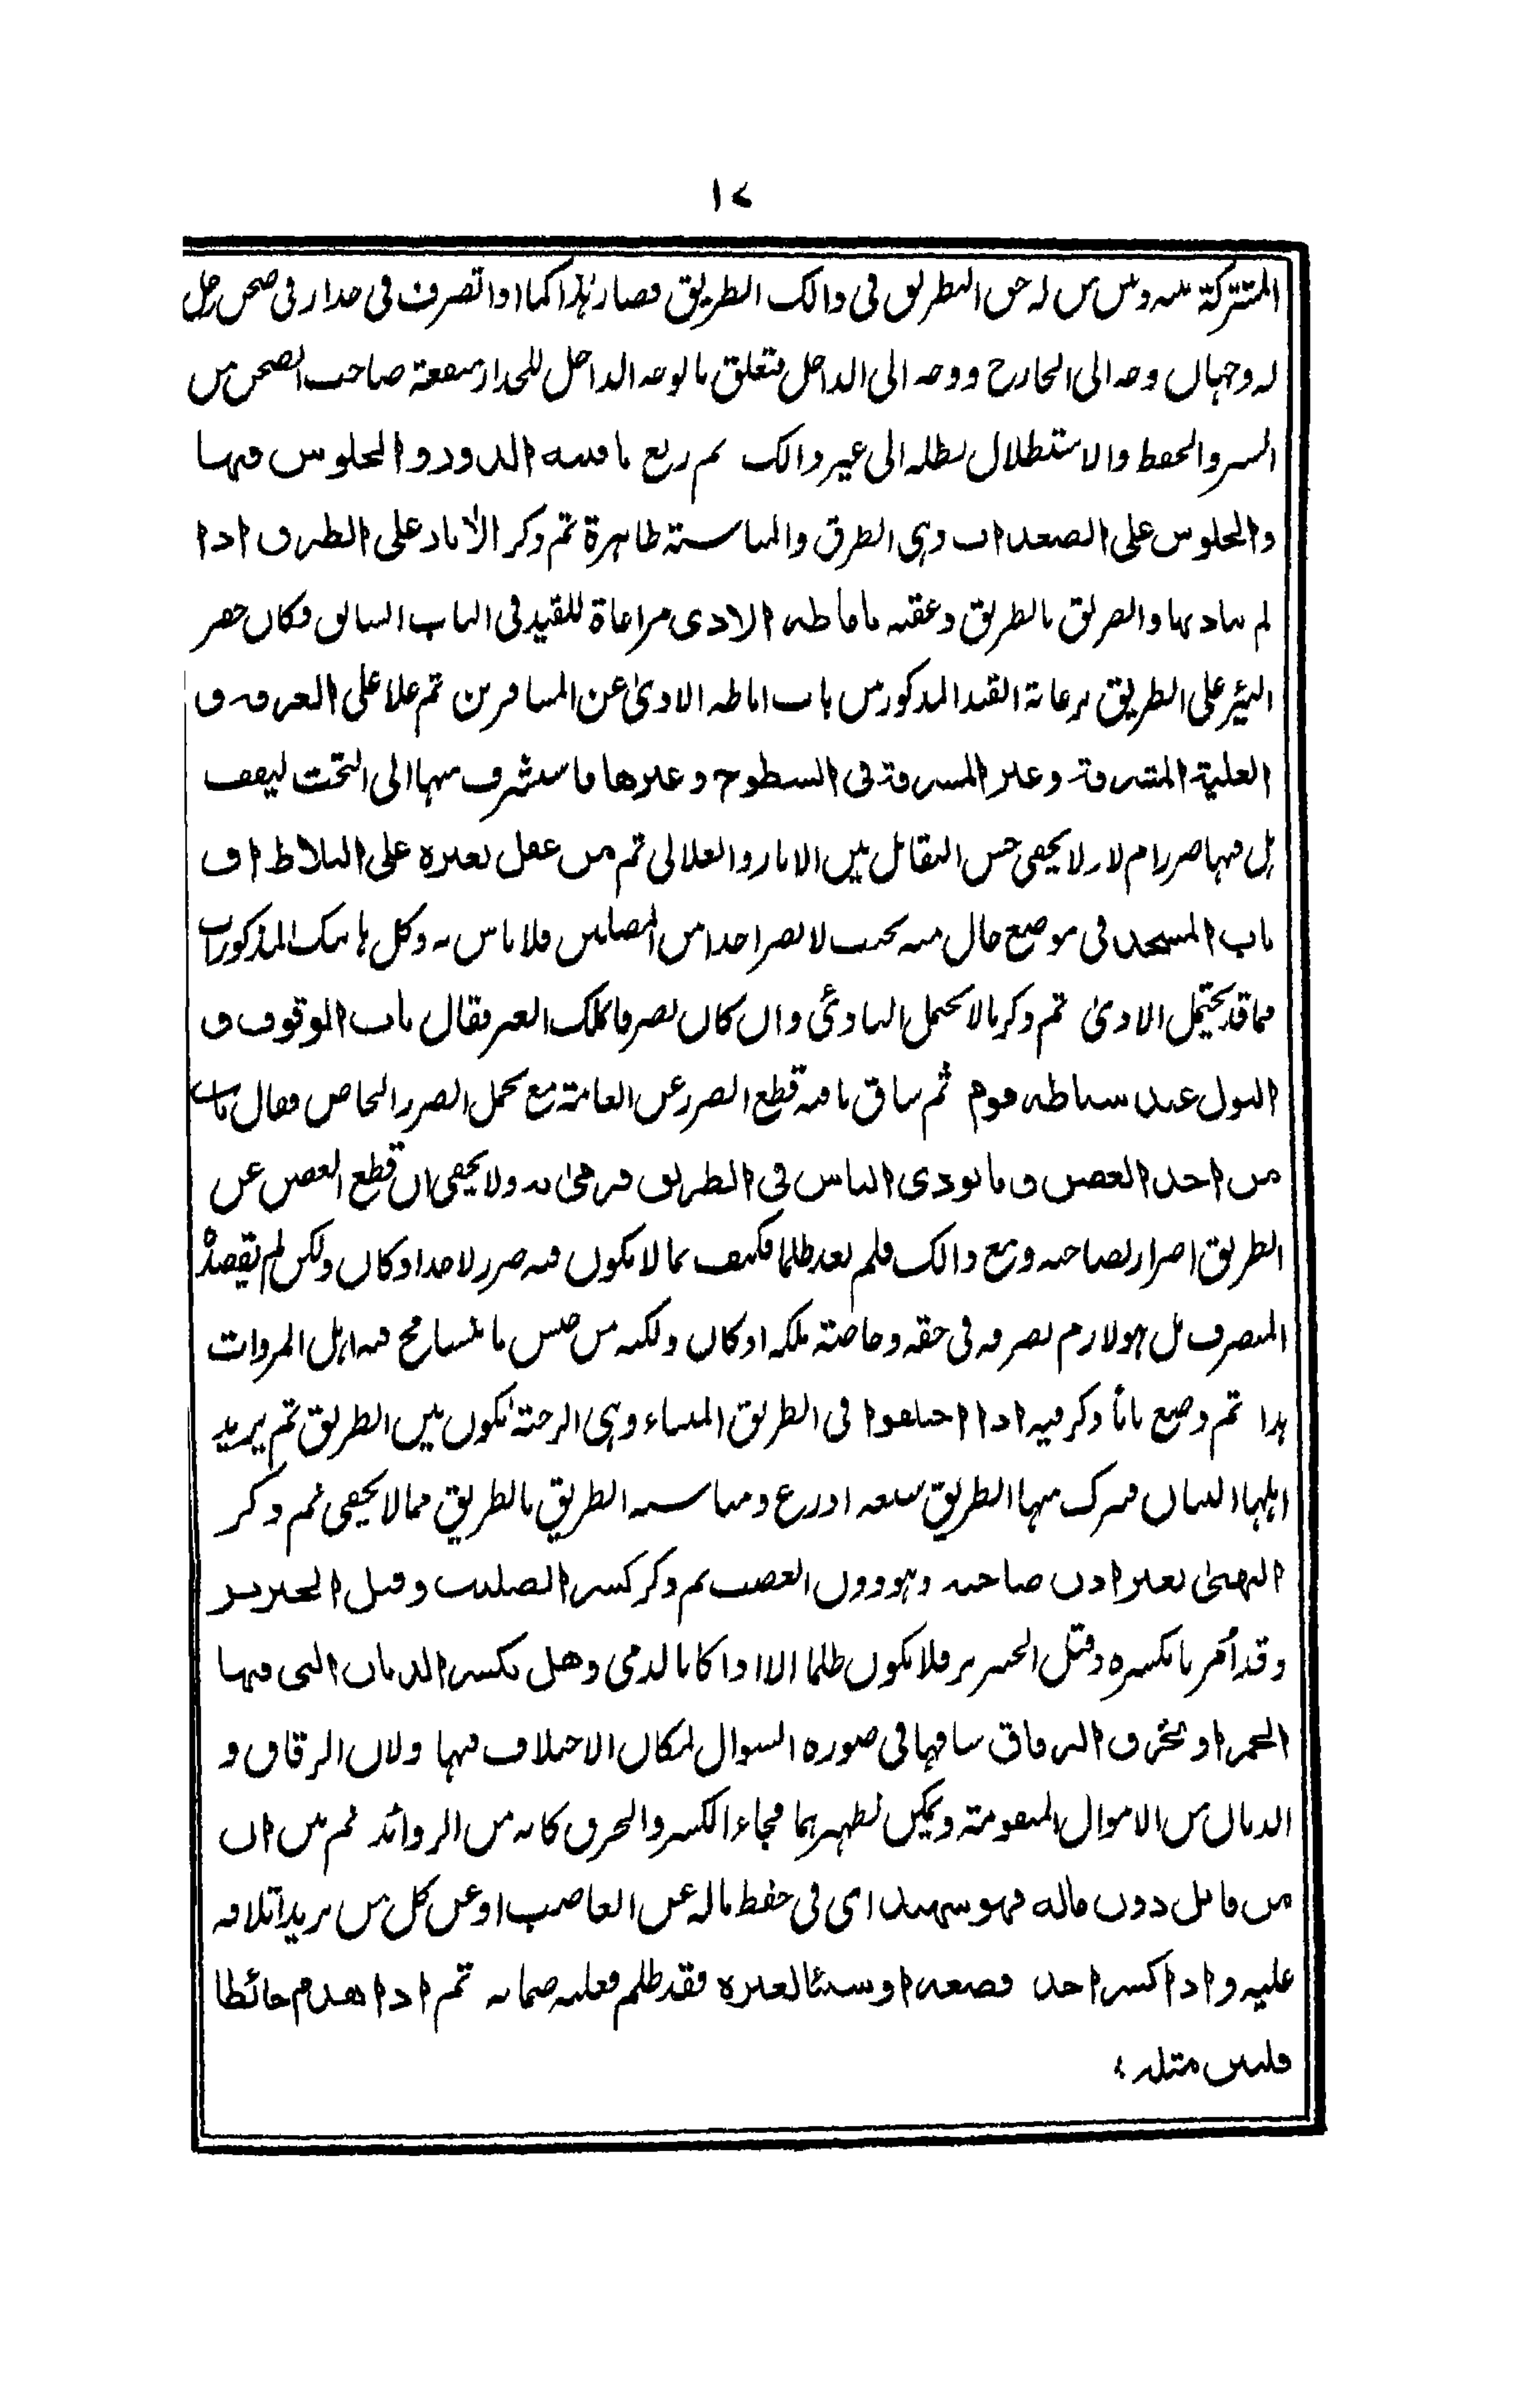 ١٧
المشتركة بينه وبين من له حق التطريق في ذالك الطريق فصار هذا كما اذا تصرف في جدار في صحن رجل
له وجهان وجه الى الخارج ووجه الى الداخل يتعلق بالوجه الداخل للجدار منفعة صاحب الصحن من
الستر والحفظ والاستظلال بظله الى غير ذالك ثم ربع بافنية الدور والجلوس فيها
والجلوس على الصعدات وهي الطرق والمناسبة ظاهرة ثم ذكر الآبار على الطرق اذا
لم يتاذ بها والصق بالطريق وعقبه باماطة الاذى مراعاة للقيد في الباب السابق فكان حفر
البئر على الطريق برعاية القيد المذكور من باب اماطة الاذى عن المسافرين ثم علا على الغرفة و
العلية المشرفة وغير المشرفة في السطوح وغيرها فاستشرف منها الى التحت ليقف
هل فيها ضرر ام لا ولا يخفى حسن التقابل بين الابار والعلالي ثم من عقل بعيره على البلاط او
باب المسجد في موضع خال منه بحيث لا يضر احدا من المصلين فلا باس به وكل هاتيك المذكورات
مما قد يحتمل الاذى ثم ذكر ما لا يحتمل التاذي وان كان تصرفا بملك الغير فقال باب الوقوف و
البول عند سباطة قوم ثم ساق ما فيه قطع الضرر عن العامة مع تحمل الضرر الخاص فقال باب
من اخذ الغصن وما يوذي الناس في الطريق فرمى به ولا يخفى ان قطع الغصن عن
الطريق اضرار لصاحبه ومع ذالك فلم يعد ظلما فكيف بما لا يكون فيه ضرر لاحد او كان ولكن لم يقصده
المتصرف بل هو لازم تصرفه في حقه وخاصة ملكه او كان ولكنه من جنس ما يتسامح فيه اهل المروات
هذا ثم وضع بابا ذكر فيه اذا اختلفوا في الطريق الميتاء وهي الرحبة تكون بين الطريق ثم يريد
اهلها البنيان فترك منها الطريق سبعة اذرع ومناسبة الطريق بالطريق مما لا يخفى ثم ذكر
النهبى بغير اذن صاحبه وهو دون الغصب ثم ذكر كسر الصليب وقتل الخنزير
وقد أمر بانكسره وقتل الخنزير فلا يكون ظلما الا اذا كانا لذمي وهل تكسر الدنان التي فيها
الخمر او تخرق الزقاق ساقها في صورة السوال لمكان الاختلاف فيها ولان الزقاق و
الدنان من الاموال المتقومة ويمكن تطهيرهما فجاء الكسر والخرق كانه من الزوائد ثم بين ان
من قاتل دون ماله فهو شهيد اي في حفظ ماله عن الغاصب او عن كل من يريد اتلافه
عليه واذا كسر احد قصعة او شيئا لغيره فقد ظلم فعليه ضمانه ثم اذا هدم حائطا
فليبن مثله ؛